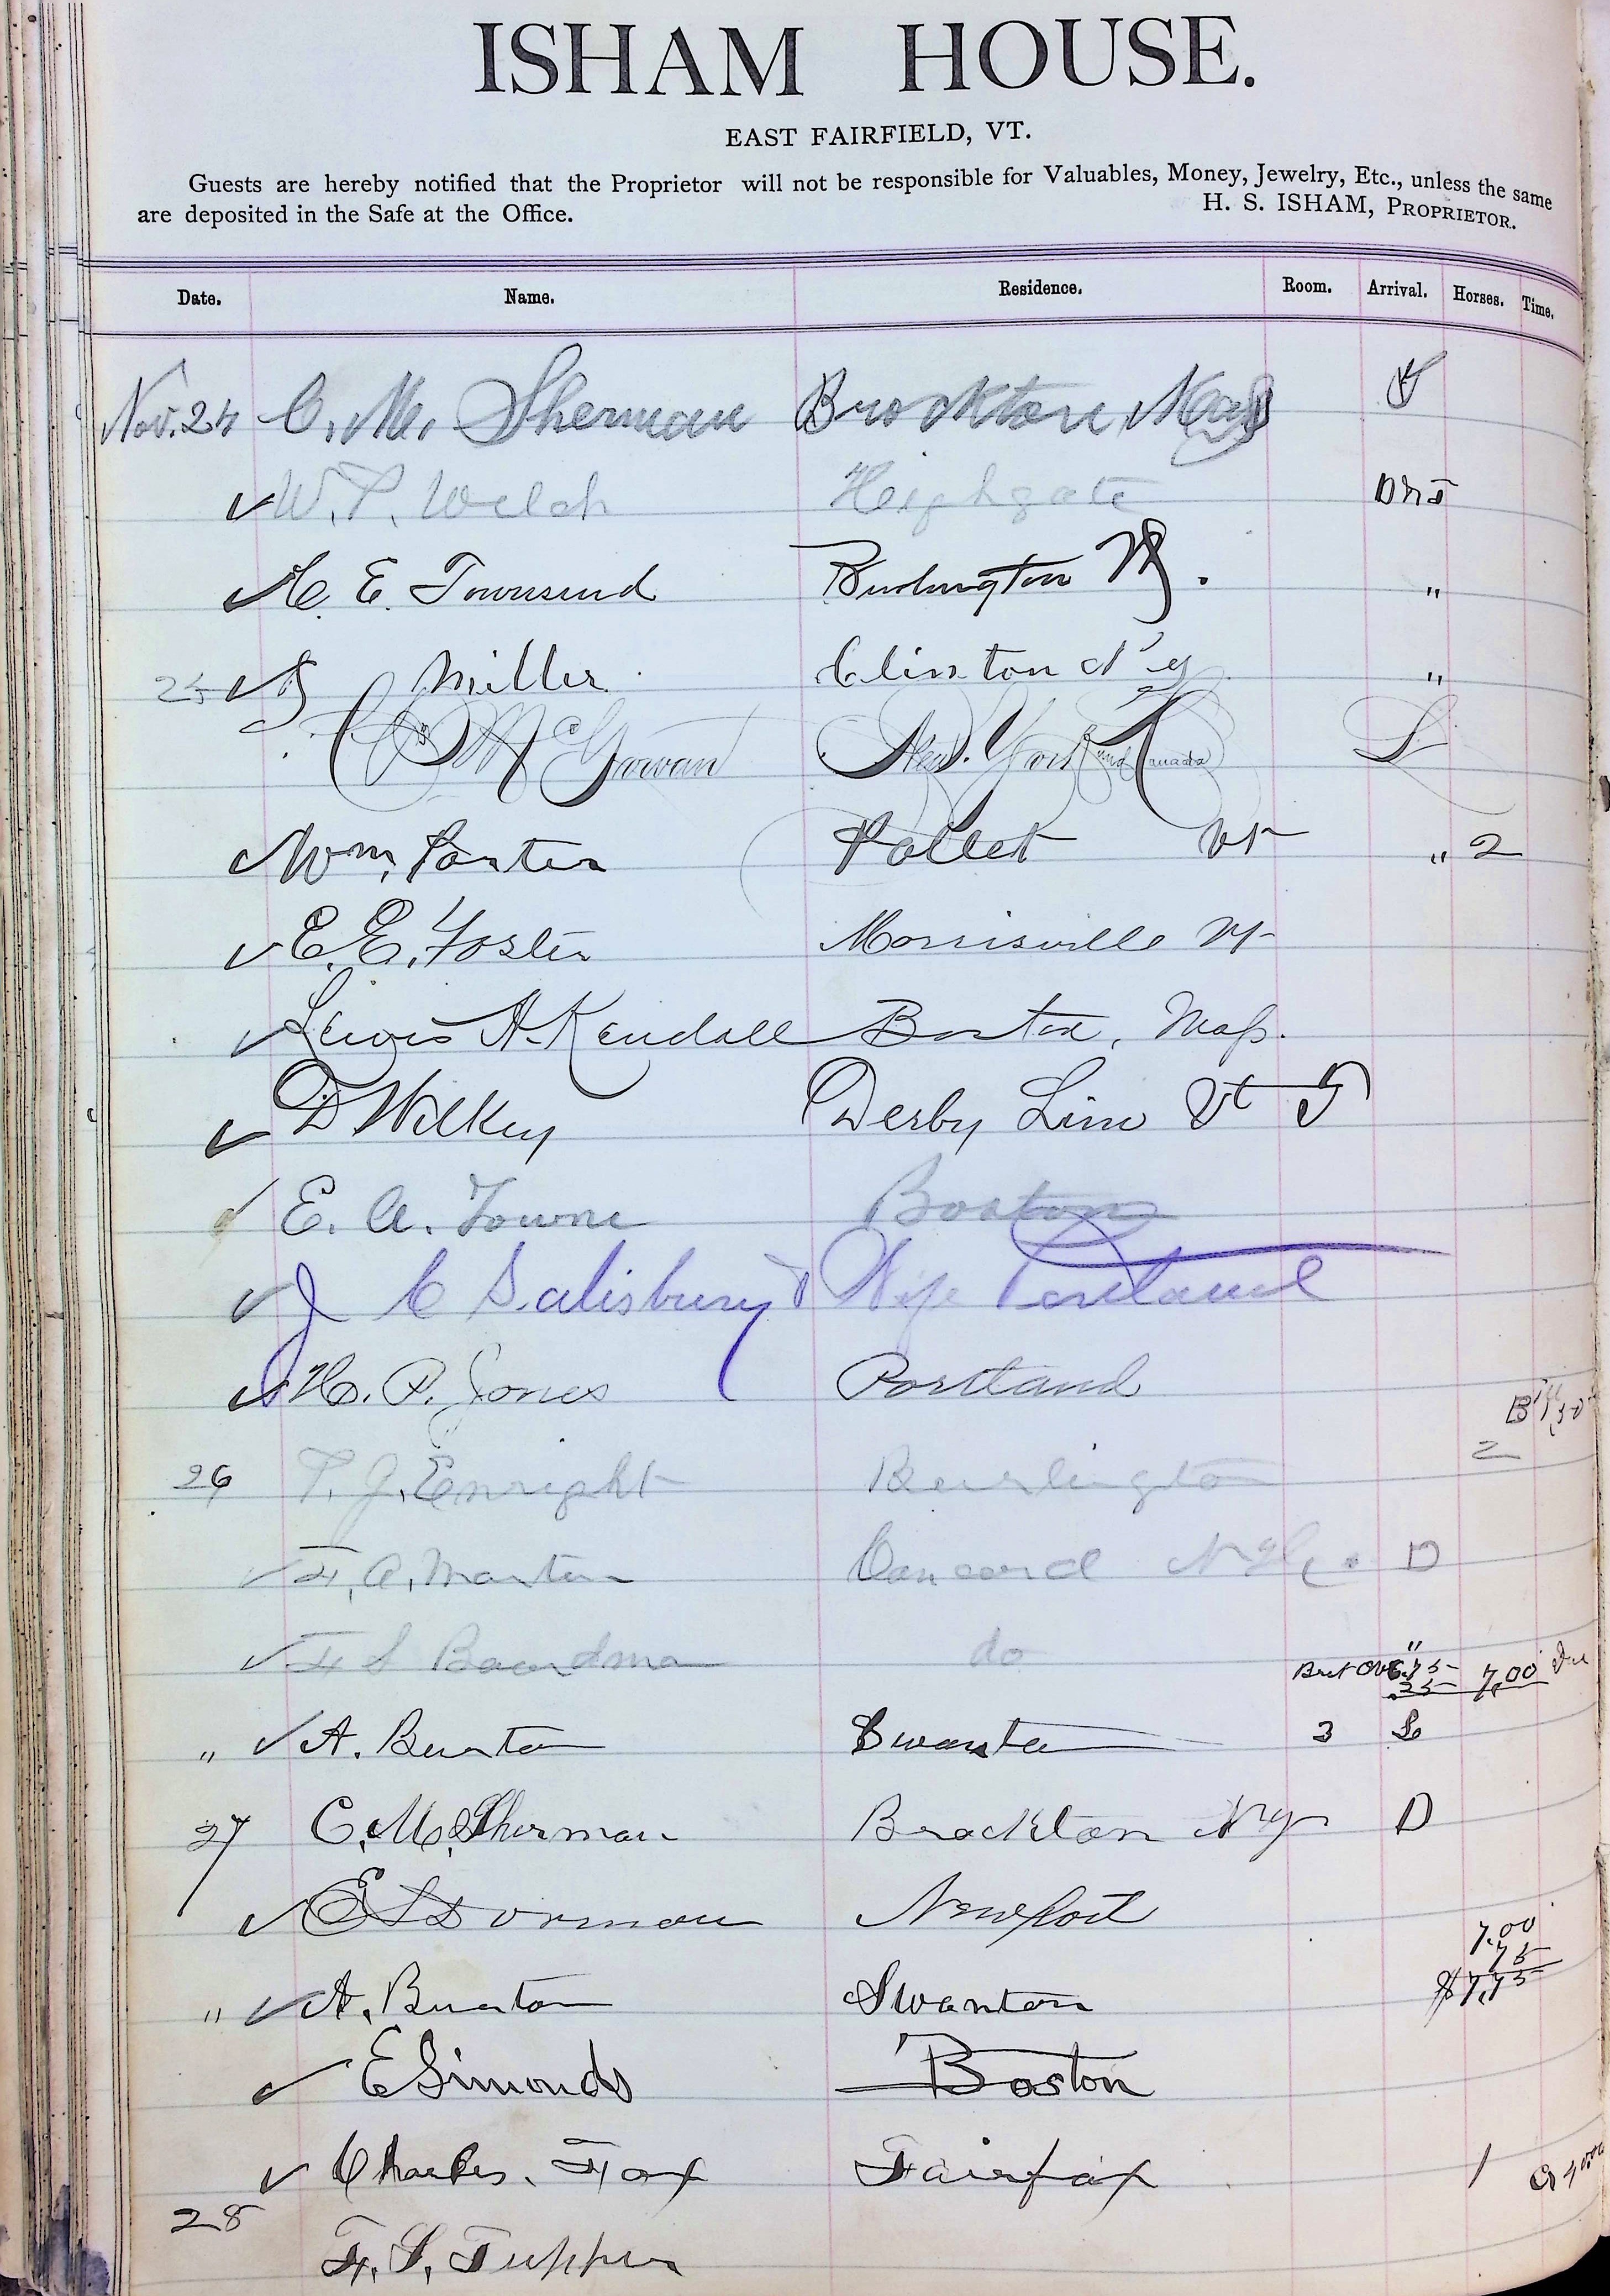 ISHAM HOUSE.
EAST FAIRFIELD, VT.
Guests are hereby notified that the Proprietor will not be responsible for Valuables, Money, Jewelry, Etc., unless the same
are deposited in the Safe at the Office. H. S. ISHAM, PROPRIETOR.
Date. Name. Residence. Room. Arrival. Horses. Time.
Nov. 24 C. M. Sherman Brockton, Mass
W. P. Welch Heighgate
E. Townsend Burlington Vt.
25 Miller Clinton N Y "
McGowan New York and Canada L
Wm. Porter Vt " 2
E. E. Foster Morrisville Vt
Lewis A. Kendall Boston, Mass.
D Wilkey Derby Line Vt
E. A. Towne Boston
J C Salisbury & Wife Portland
H. P. Jones Portland
Bill 1,50
26 T. J. Enright Burlington 2
F. A. Martin Concord N H. D
F S Boardman do "
Brt Over 6.75 7,00 Due
.25
" A. Burton Swanton 3 L
27 C. M. Sherman Brockton N y D
E S Dorman Newport
7.00
75
" A. Burton Swanton $7,75
E Simonds Boston
Charles. Fox Fairfax 1
28
F. S. Tupper